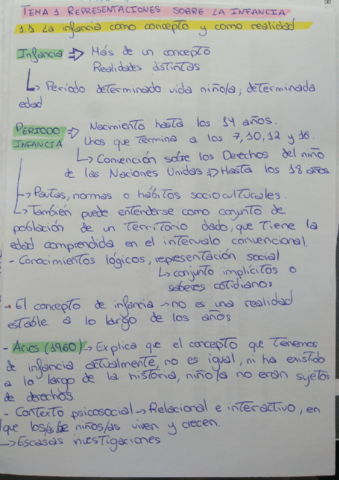 TEMA 1 REPRESENTACIONES SOBRE LA INFANCIA
1.1 La infancia como concepto y como realidad
Infancia ⇒ Más de un concepto
Realidades distintas
↳ Período determinado vida niño/a; determinada
edad
PERIODO INFANCIA ⇒ Nacimiento hasta los 14 años.
Unos que termina a los 7, 10, 12 y 16.
↳ Convención sobre los Derechos del niño
de las Naciones Unidas → Hasta los 18 años
↳ Pautas, normas o hábitos socioculturales.
↳ También puede entenderse como conjunto de
población de un territorio dado, que tiene la
edad comprendida en el intervalo convencional.
- Conocimientos lógicos, representación social
↳ conjunto implícitos o
saberes cotidianos
- El concepto de infancia → no es una realidad
estable a lo largo de los años
- Aries (1960) → Explica que el concepto que tenemos
de infancia actualmente, no es igual, ni ha existido
a lo largo de la historia, niño/a no eran sujetos
de derechos
- Contexto psicosocial → Relacional e interactivo, en
que los/as niños/as viven y crecen.
→ Escasas investigaciones